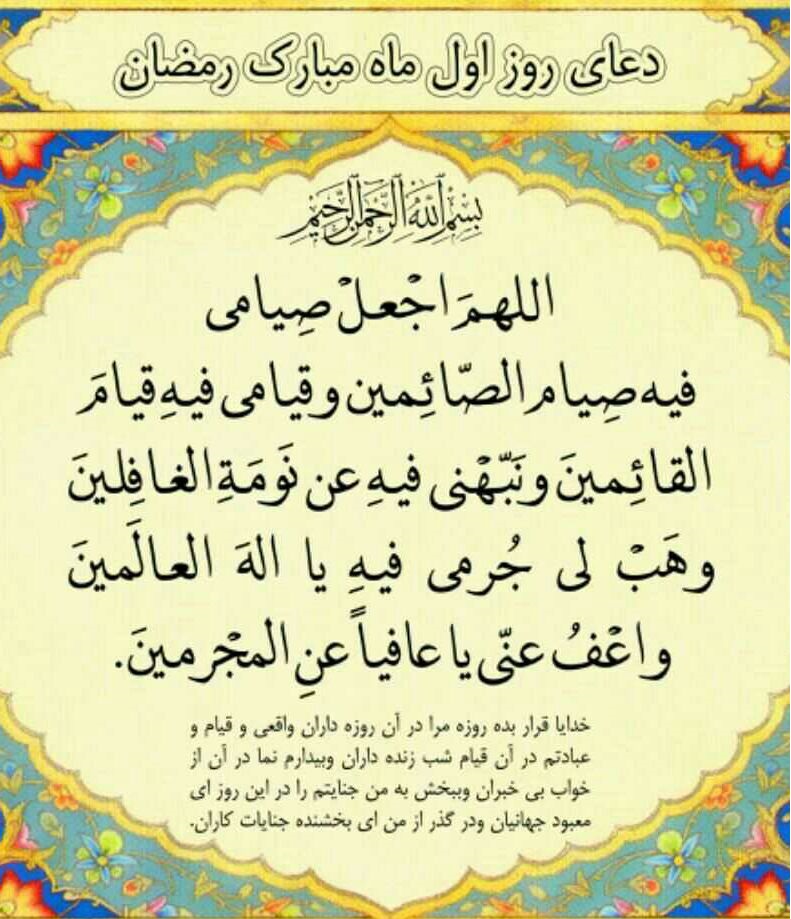 دعای روز اول ماه مبارک رمضان
بِسْمِ اللَّهِ الرَّحْمَنِ الرَّحِيمِ
اللهمَ اجْعلْ صِيامی
فيه صِيام الصّائِمين وقيامی فيهِ قيامَ
القائِمينَ ونَبّهْنی فيهِ عن نَومَةِ الغافِلينَ
وهَبْ لی جُرمی فيهِ يا الهَ العالَمينَ
واعْفُ عنّی يا عافياً عنِ المجْرمينَ.
خدایا قرار بده روزه مرا در آن روزه داران واقعی و قیام و
عبادتم در آن قیام شب زنده داران وبیدارم نما در آن از
خواب بی خبران وببخش به من جنایتم را در این روز ای
معبود جهانیان ودر گذر از من ای بخشنده جنایات کاران.